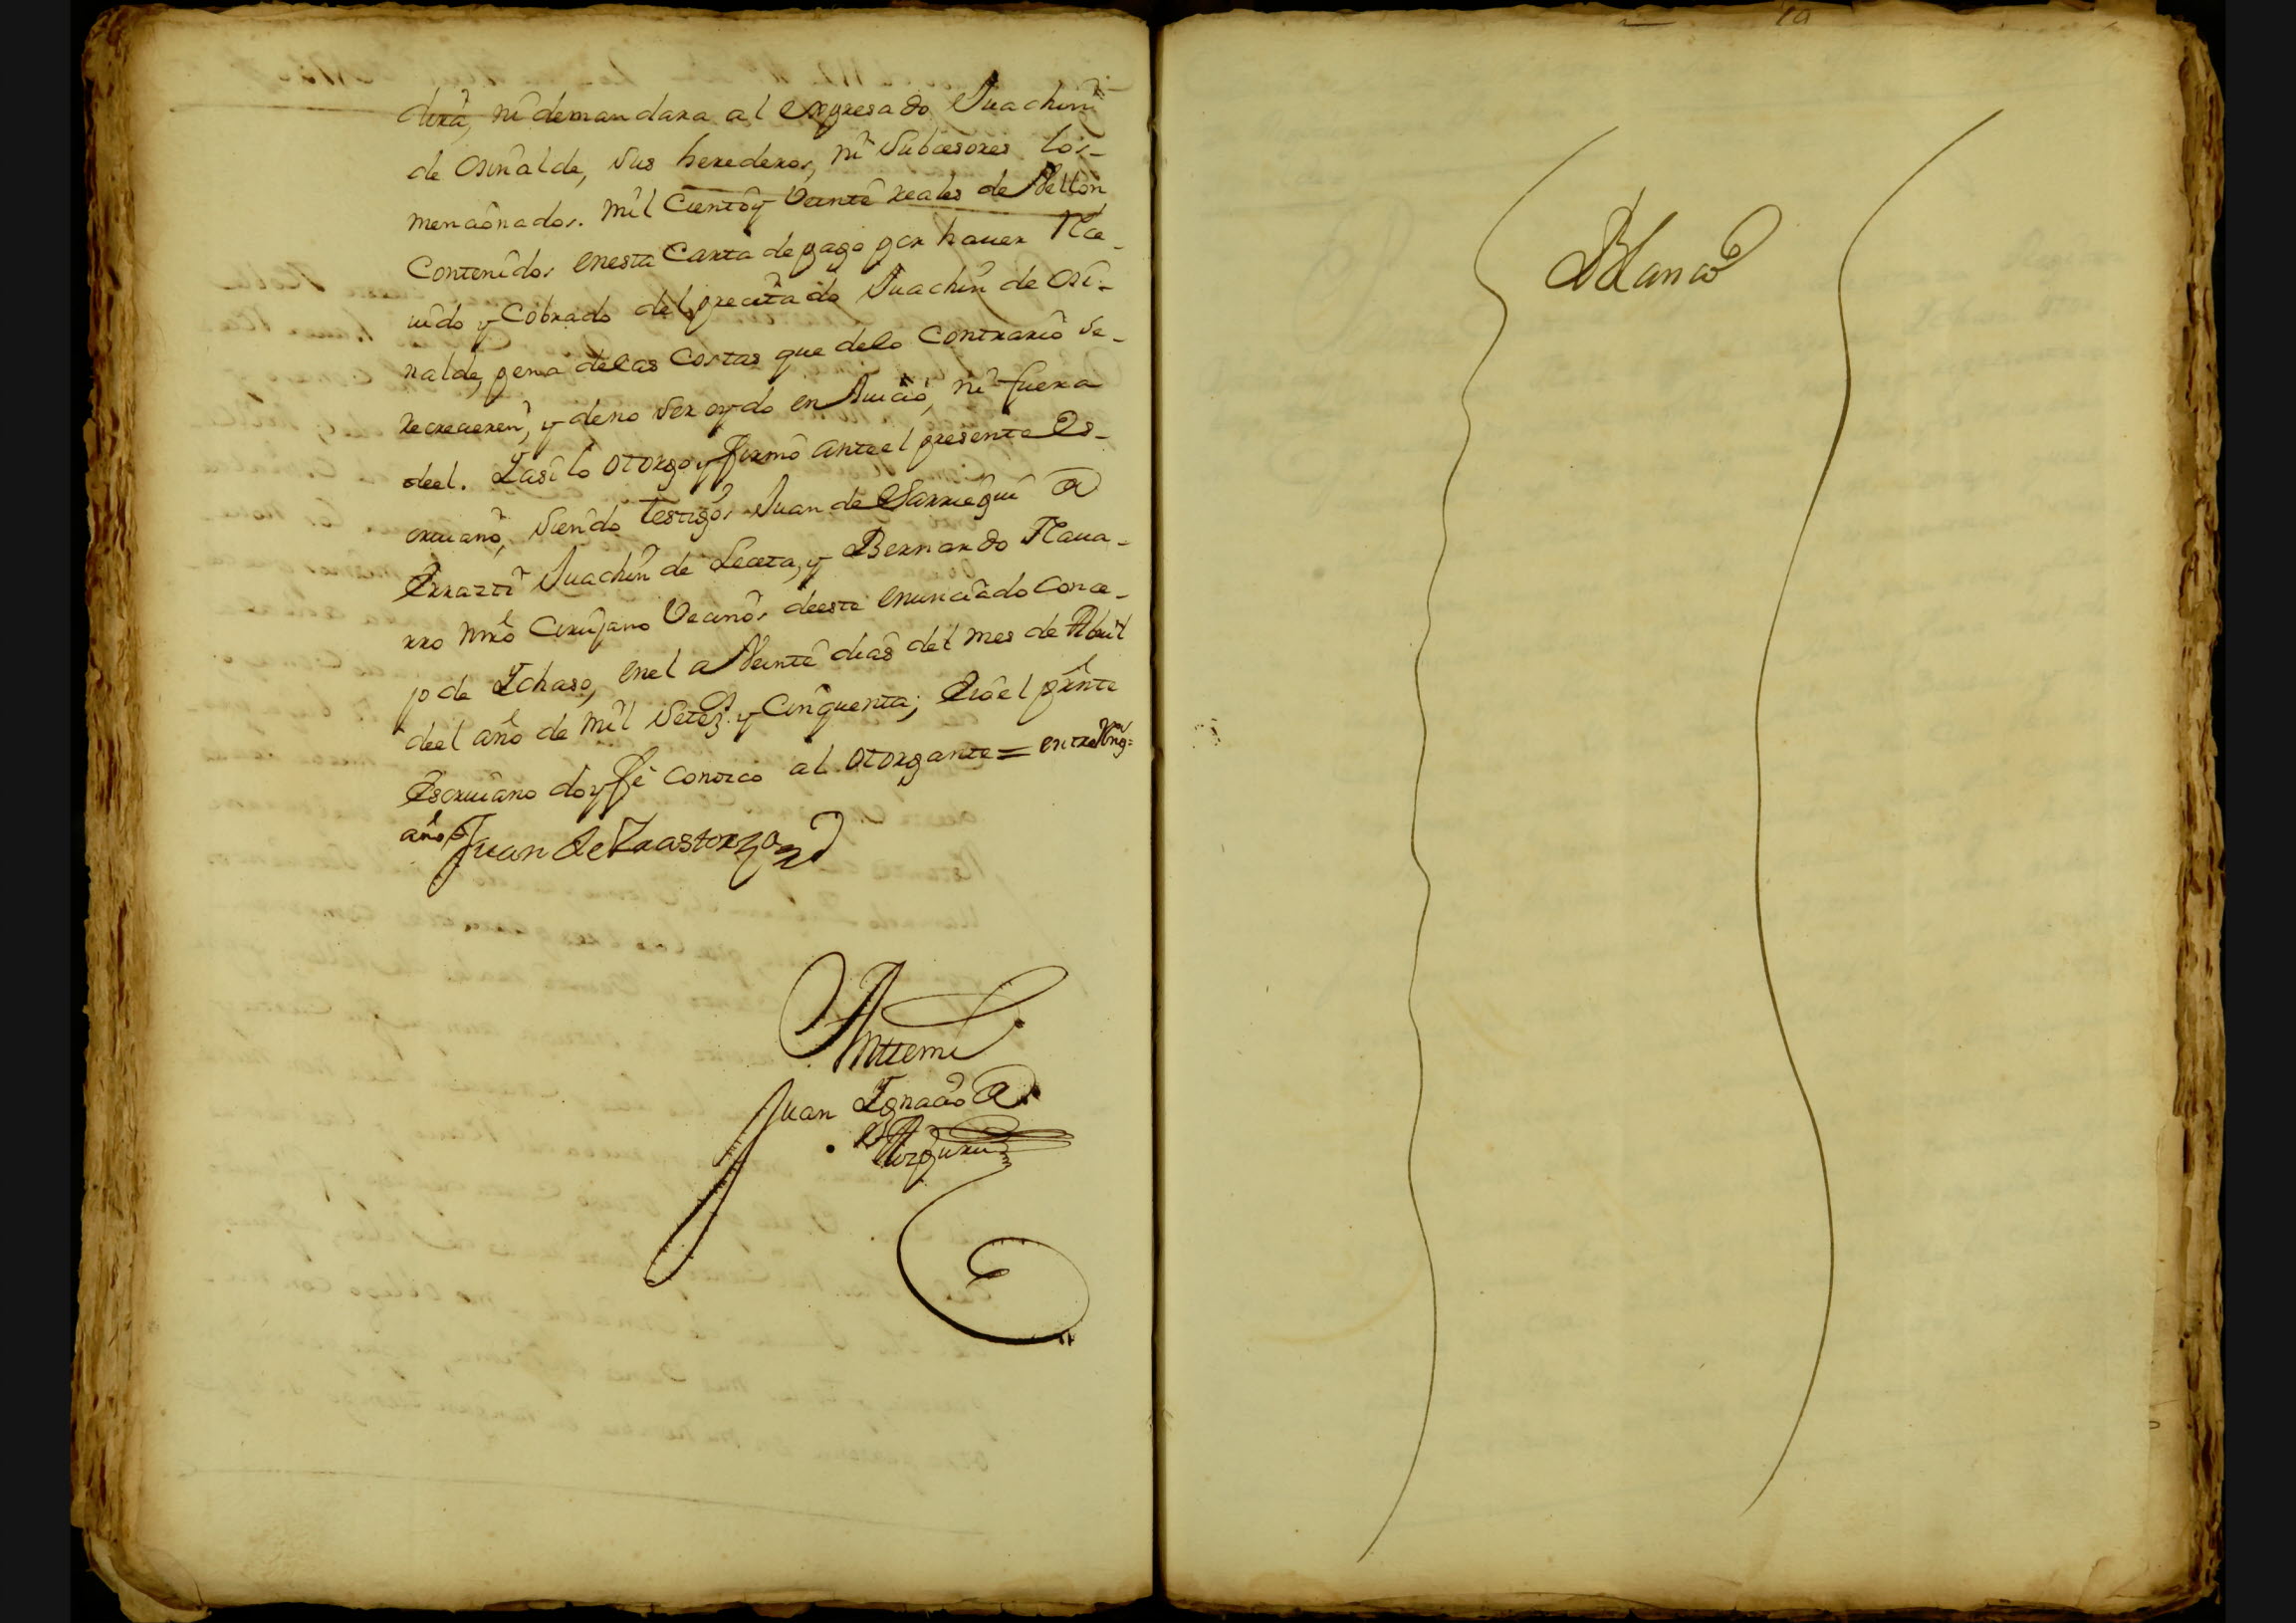 dira, ni demandara al expresado Juachin
de Osinalde, sus herederos, ni subcesores los
mencionados. mil Ciento y Veinte reales de Vellon
Contenidos en esta Carta de pago por hauer Rce-
uido y Cobrado del precitado Juachin de Osi-
nalde, pena de las Costas que de lo Contrario se
recrecieren, y de no ser oydo en Juicio, ni fuera
deel. Y asi lo otorgo y firmo ante el presente Es-
criuano, siendo testigos Juan de Sarriegui
Errazti Juachin de Leceta, y Bernardo Naua-
rro mro Cirujano Vecinos de este enunciado Conce-
jo de Ychaso, en el a Veinte dias del mes de Abril
deel año de mil setez.s y Cinquenta; E io el prnte
Escriuano doy fe Conozco al otorgante = entre Reng.s
año
Juan de Yrastorza
Antemi
Juan Ygnacio
Blanco